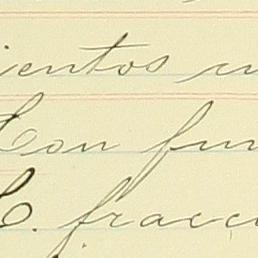 ientos
Con fun
C. fracc